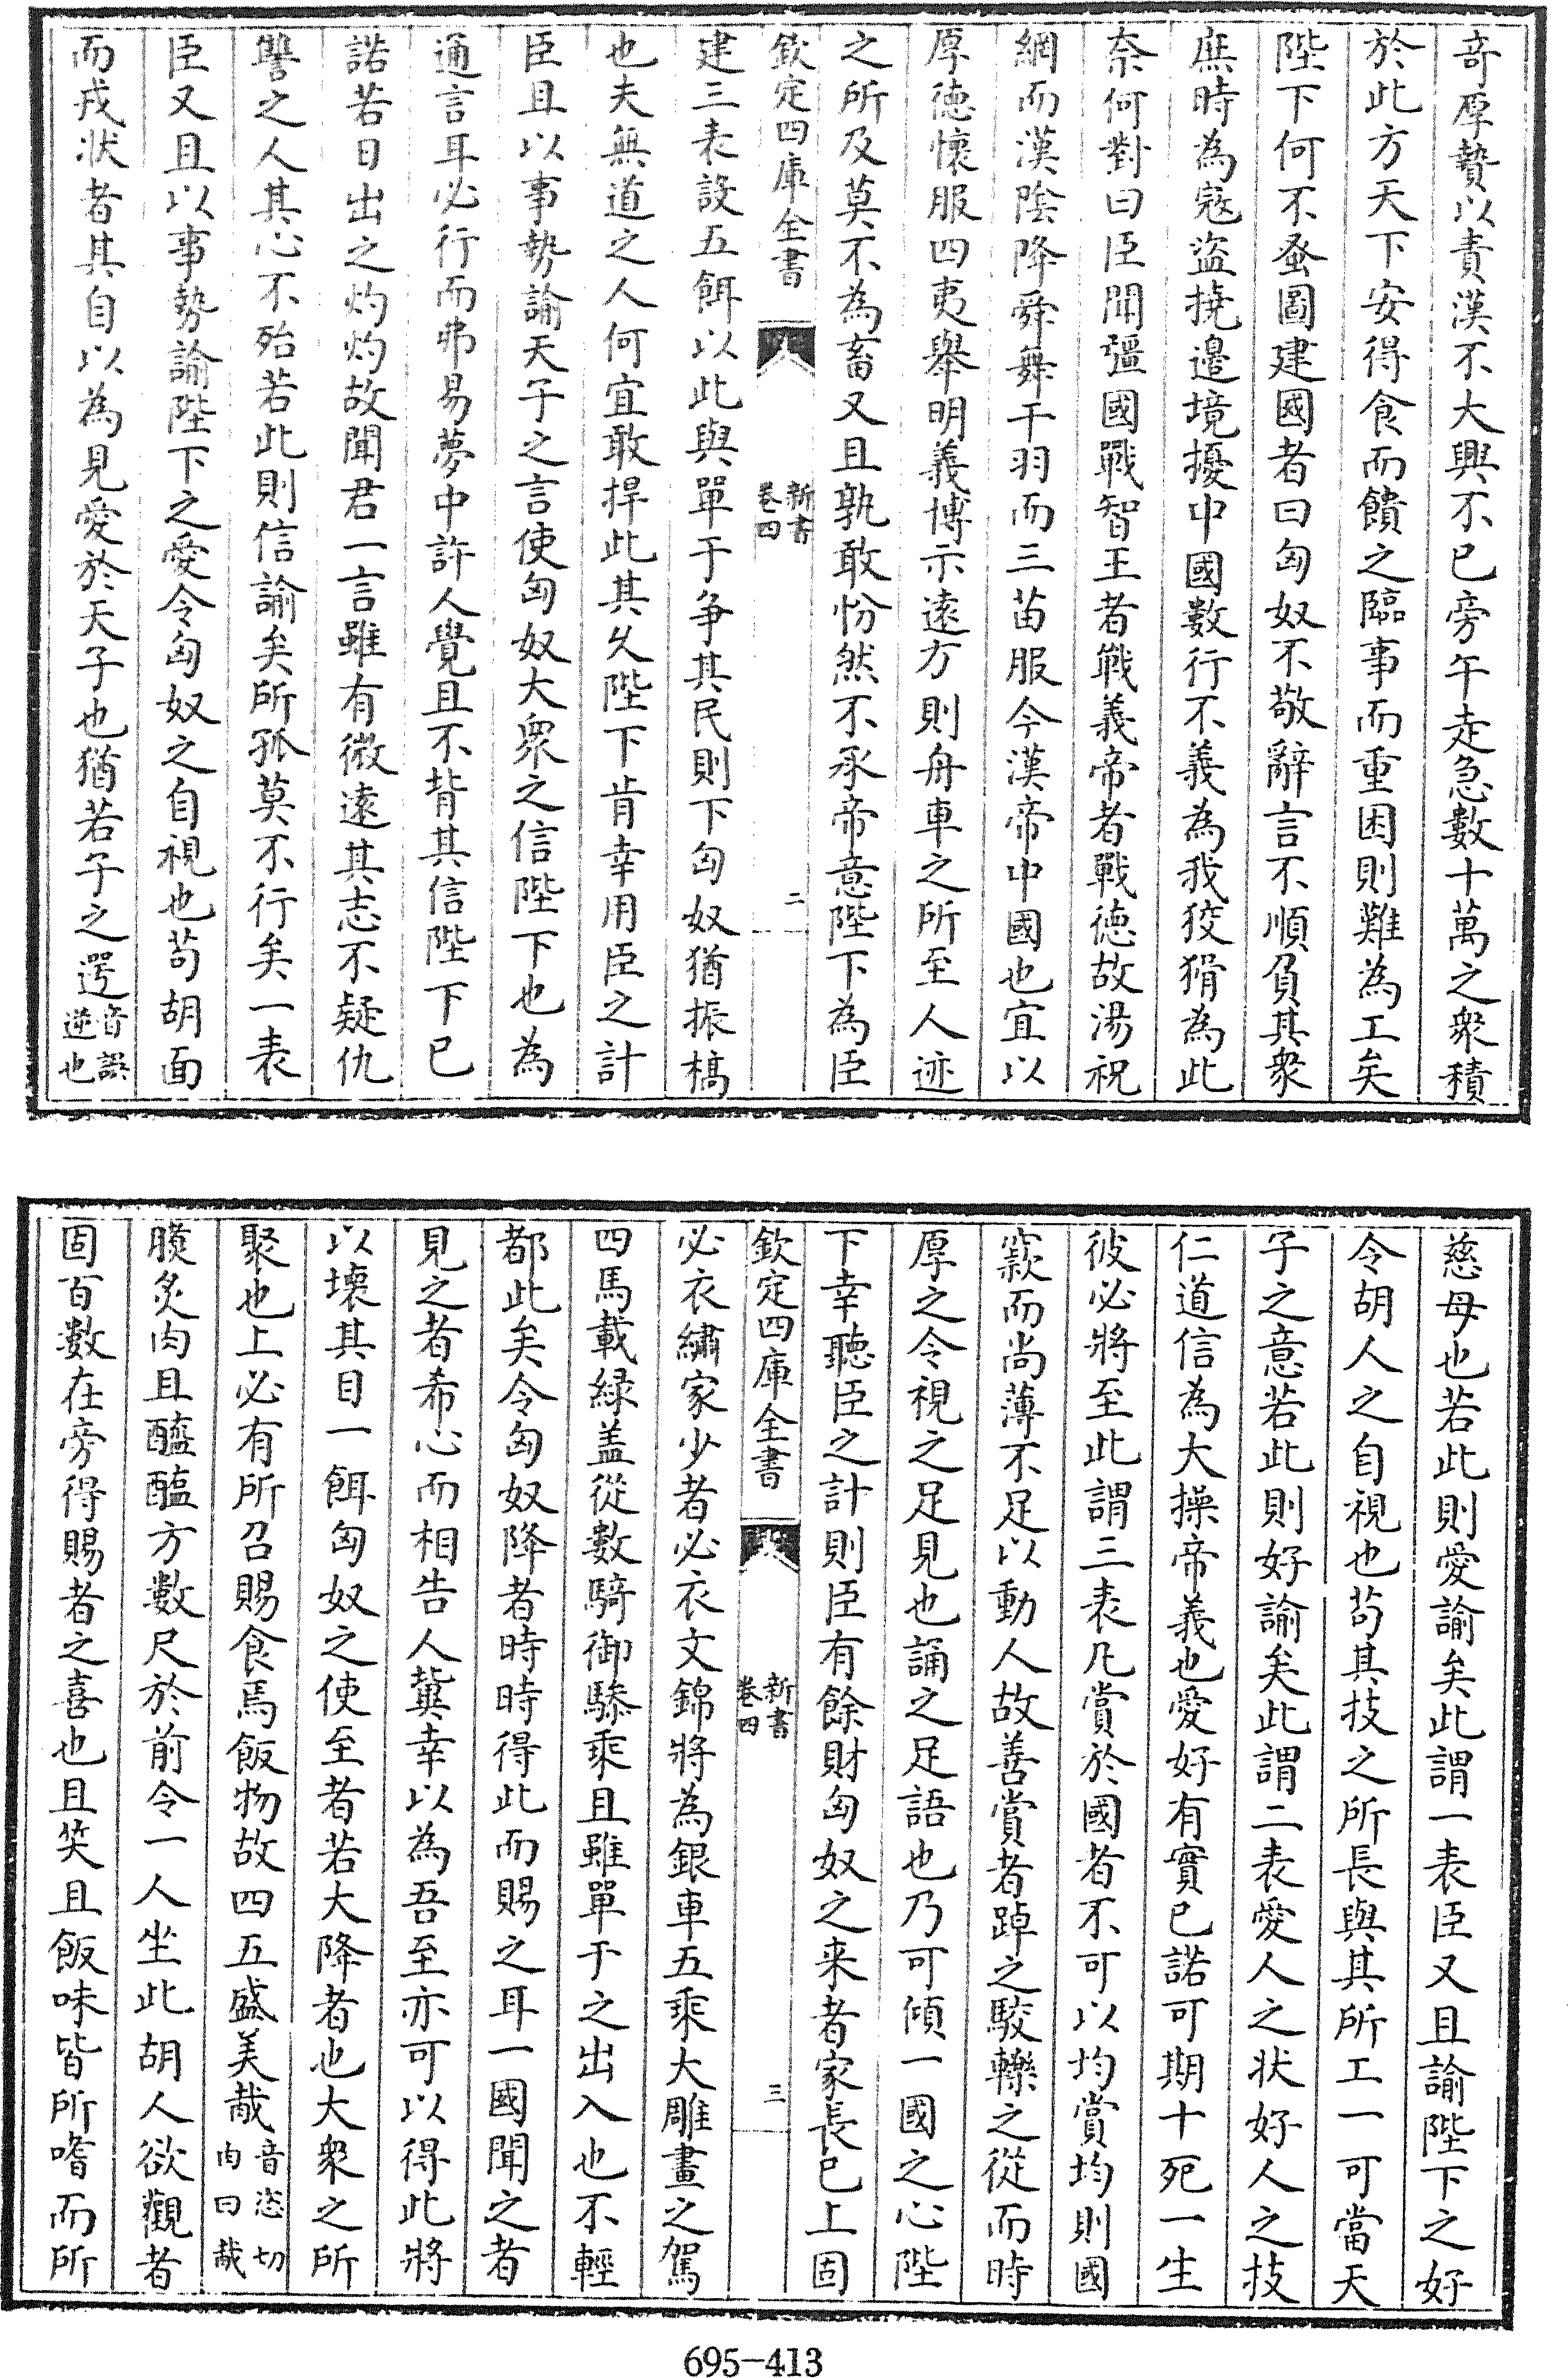 竒厚贄以責漢不大興不已旁午走急數十萬之衆積
於此方天下安得食而饋之臨事而重困則難為工矣
陛下何不蚤圖建國者曰匈奴不敬辭言不順負其衆
庶時為寇盜撓邉境擾中國數行不義為我狡猾為此
奈何對曰臣聞彊國戰智王者戰義帝者戰徳故湯祝
網而漢隂降舜舞干羽而三苗服今漢帝中國也宜以
厚徳懷服四夷舉明義博示遠方則舟車之所至人迹
之所及莫不為畜又且孰敢忿然不承帝意陛下為臣
欽定四庫全書
新書
卷四
二
建三表設五餌以此與單于争其民則下匈奴猶振槁
也夫無道之人何宜敢捍此其久陛下肯幸用臣之計
臣且以事勢諭天子之言使匈奴大衆之信陛下也為
通言耳必行而弗易夢中許人覺且不背其信陛下已
諾若日出之灼灼故聞君一言雖有微逺其志不疑仇
讐之人其心不殆若此則信諭矣所孤莫不行矣一表
臣又且以事勢諭陛下之愛令匈奴之自視也苟胡面
而戎狀者其自以為見愛於天子也猶若子之遌音誤逆也
慈母也若此則愛諭矣此謂一表臣又且諭陛下之好
令胡人之自視也苟其技之所長與其所工一可當天
子之意若此則好諭矣此謂二表愛人之状好人之技
仁道信為大操帝義也愛好有實已諾可期十死一生
彼必將至此謂三表凡賞於國者不可以均賞均則國
窾而尚薄不足以動人故善賞者踔之駮轢之從而時
厚之令視之足見也誦之足語也乃可傾一國之心陛
下幸聽臣之計則臣有餘財匈奴之来者家長已上固
欽定四庫全書
新書
卷四
三
必衣繡家少者必衣文錦將為銀車五乘大雕畫之駕
四馬載緑盖從數騎御驂乘且雖單于之出入也不輕
都此矣令匈奴降者時時得此而賜之耳一國聞之者
見之者希心而相告人冀幸以為吾至亦可以得此將
以壊其目一餌匈奴之使至者若大降者也大衆之所
聚也上必有所召賜食焉飯物故四五盛美胾音恣切肉曰胾
膹炙肉且醯醢方數尺於前令一人坐此胡人欲觀者
固百數在旁得賜者之喜也且笑且飯味皆所嗜而所
695-413